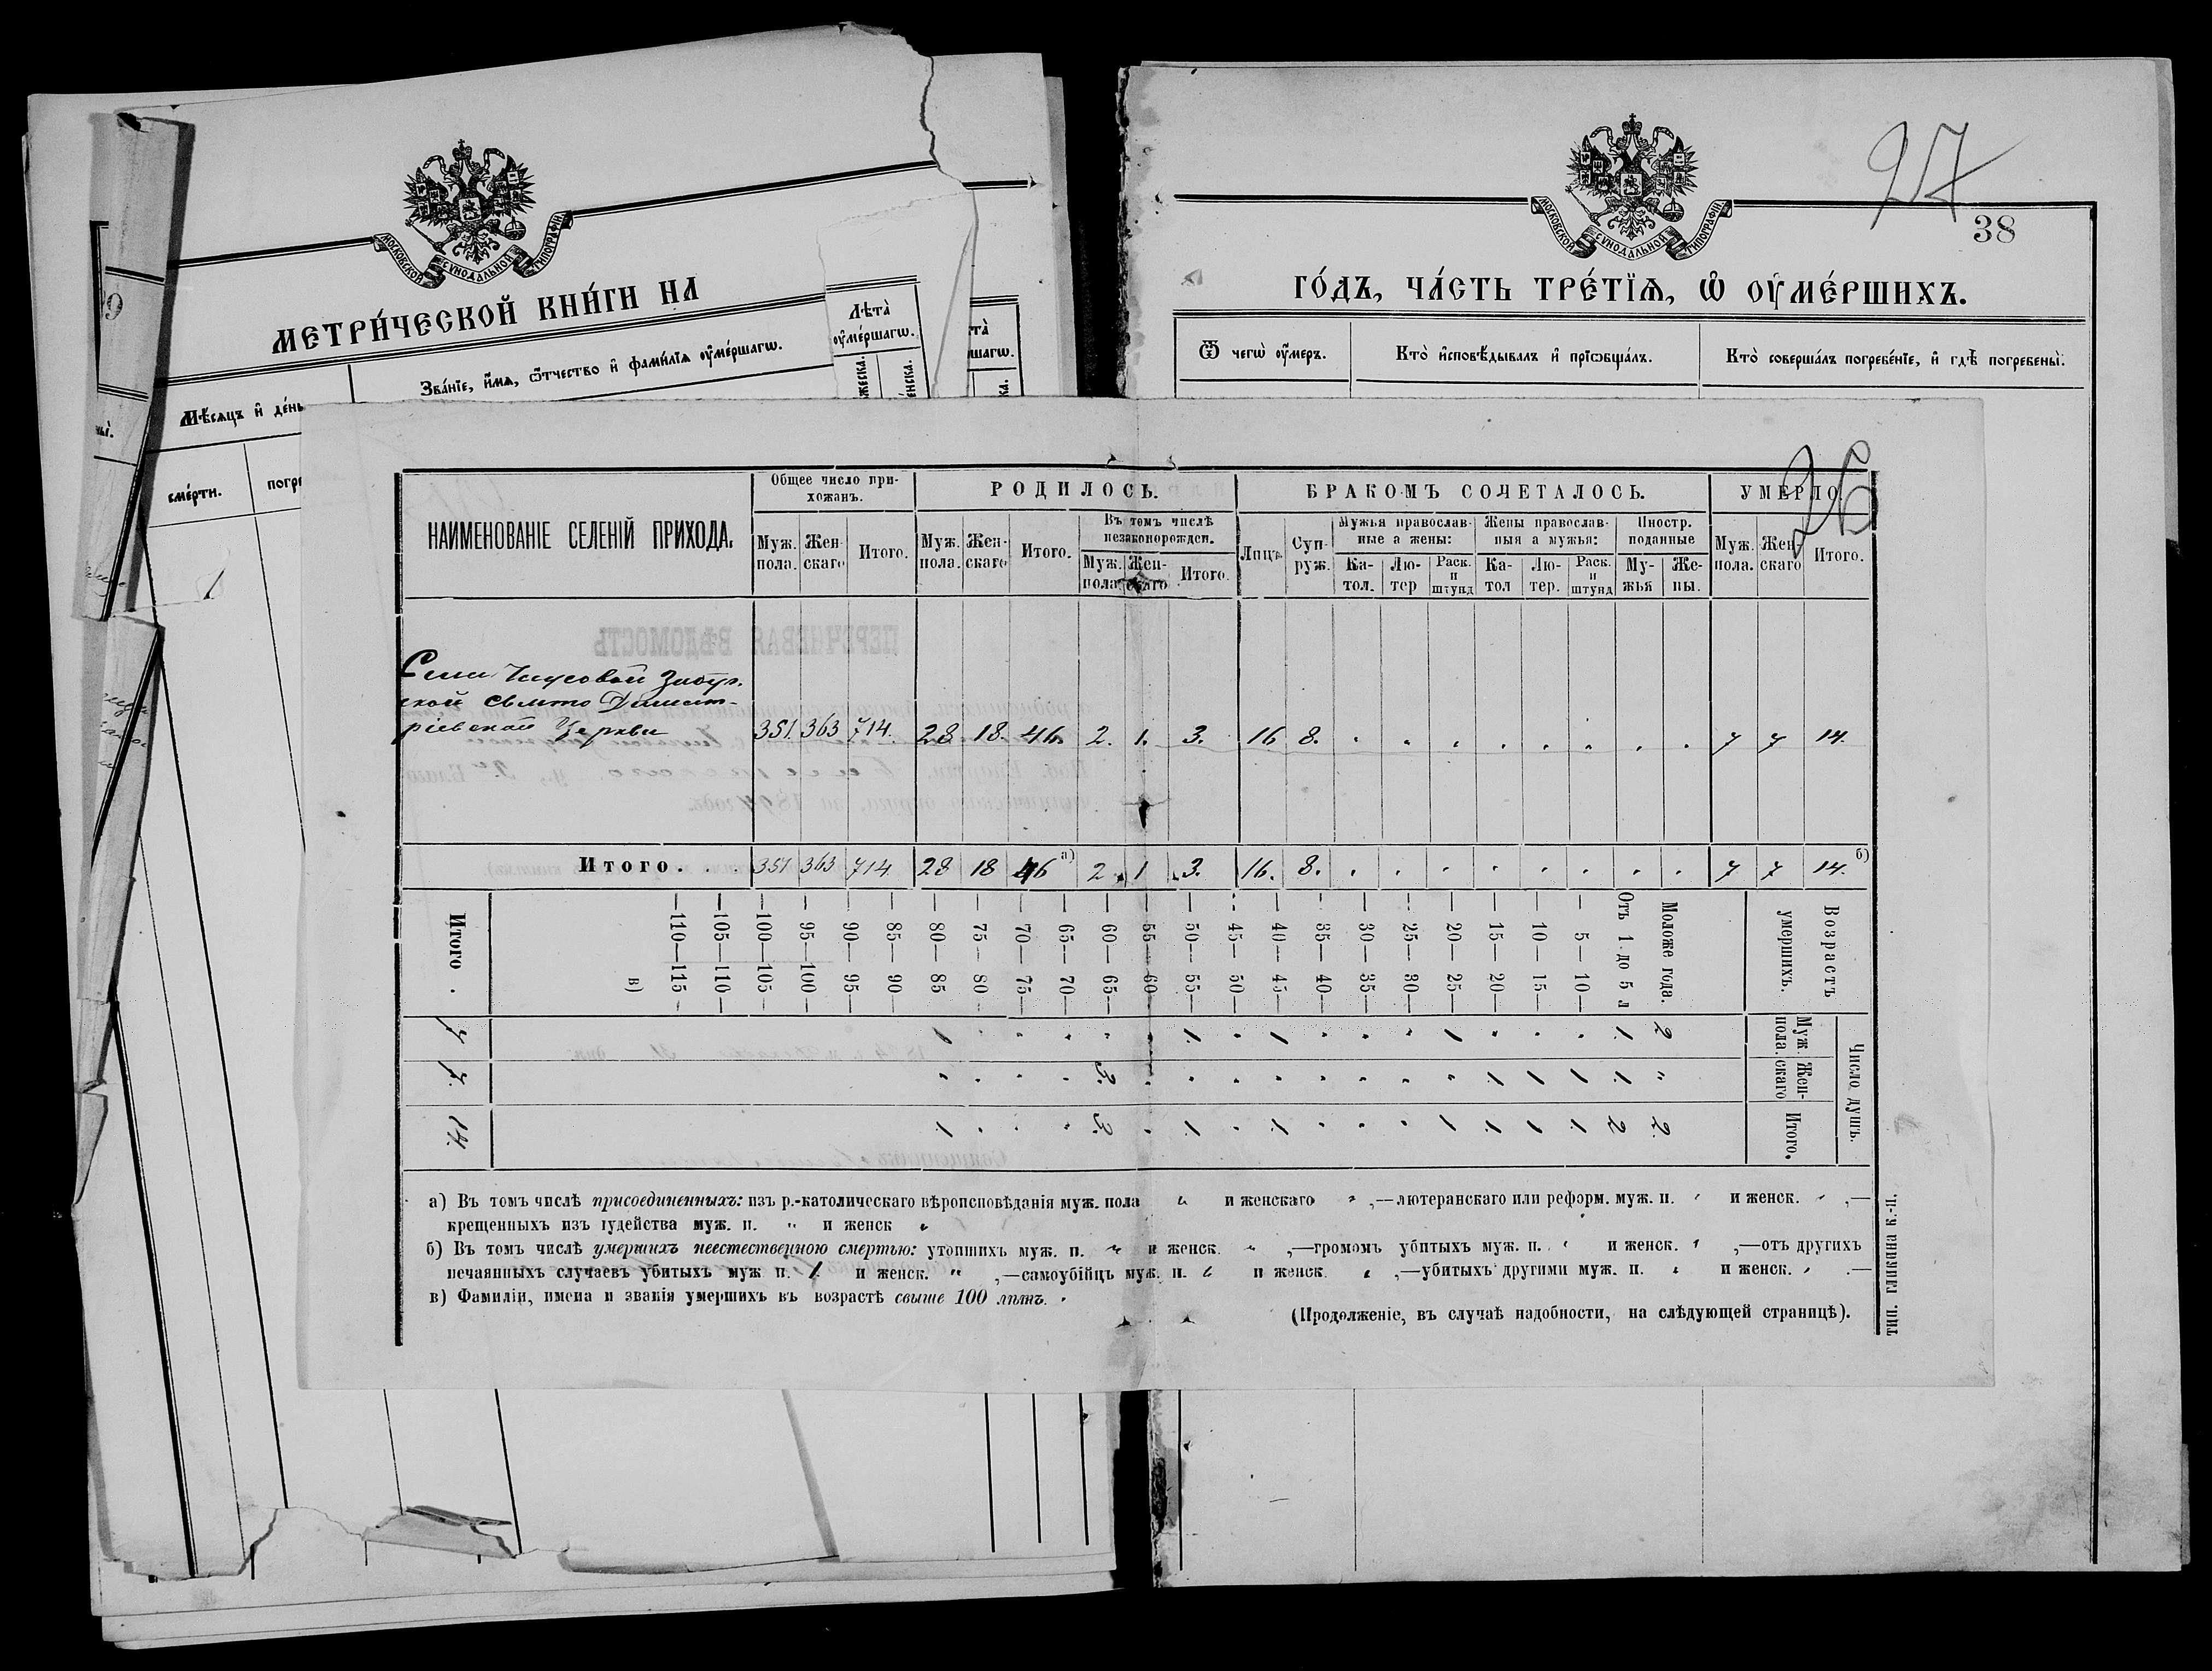 27
38
МОСКОВСКОЙ СУНОДАЛЬНОЙ ТИПОГРАФІИ
МЕТРИ́ЧЕСКОЙ КНИ́ГИ НА
Мѣ́сѧцъ и҆ де́нь
сме́рти.
погре
Зва́нїе, и҆́мѧ, ѻ҆́тчество и҆ фами́лїѧ ᲂу҆ме́ршагѡ.
Лѣта̀ ᲂу҆ме́ршагѡ.
МОСКОВСКОЙ СУНОДАЛЬНОЙ ТИПОГРАФІИ
ГО́ДЪ, ЧА́СТЬ ТРЕ́ТЇѦ, Ѡ҆ ОУ҆МЕ́РШИХЪ.
Ѿ чегѡ̀ ᲂу҆́меръ.
Кто̀ и҆сповѣ́дывалъ и҆ прїѡбща́лъ.
Кто̀ соверша́лъ погребе́нїе, и҆ гдѣ̀ погребены̀.
26
НАИМЕНОВАНІЕ СЕЛЕНІЙ ПРИХОДА.
Общее число прихожанъ.
Муж. пола. Женскаго Итого.
РОДИЛОСЬ.
Муж. пола. Женскаго Итого.
Въ томъ числѣ незаконорожден.
Муж. пола Женскаго Итого.
БРАКОМЪ СОЧЕТАЛОСЬ.
Лицъ. Супруж.
Мужья православные а жены:
Катол. Лютер Раск. и штунд
Жены православныя а мужья:
Катол Лютер. Раск. и штунд
Иностр. поданные
Мужья Жены.
УМЕРЛО.
Муж. пола. Женскаго Итого.
Димитріевской Церкви 351 363 714. 28 18. 46. 2. 1. 3. 16 8. 7 7 14.
Итого . . . 351 363 714 28 18 46 а) 2 1 3. 16. 8. 7 7 14. б)
Возрастъ умершихъ.
Число душъ.
Муж. пола. Женскаго Итого.
Моложе года. 2 „ 2.
Отъ 1 до 5 л 1. 1. 2
— 5—10— 1 1.
— 10—15— 1 1
— 15—20— 1. 1.
— 20—25— 1 1
— 25—30—
— 30—35—
— 35—40—
— 40—45— 1 1.
— 45—50—
— 50—55— 1. 1.
— 55—60—
— 60—65— 3. 3.
— 65—70—
— 70—75—
— 75—80—
— 80—85 1 1
— 85—90—
— 90—95—
— 95—100—
—100—105—
—105—110—
—110—115—
в)
Итого . 7 7. 14.
а) Въ томъ числѣ присоединенныхъ: изъ р.-католическаго вѣроисповѣданія муж. пола „ и женскаго „ ,—лютеранскаго или реформ. муж. п. „ и женск. „ ,—
крещенныхъ изъ іудейства муж. п. „ и женск „
б) Въ томъ числѣ умершихъ неестественною смертью: утопшихъ муж. п. „ и женск. „ ,—громомъ убитыхъ муж. п. „ и женск. „ ,—отъ другихъ
нечаянныхъ случаевъ убитыхъ муж п. 1. и женск. „ ,—самоубійцъ муж. п. „ и женск „ ,—убитыхъ другими муж. п. „ и женск. „ .—
в) Фамиліи, имена и званія умершихъ въ возрастѣ свыше 100 лѣтъ.
(Продолженіе, въ случаѣ надобности, на слѣдующей страницѣ).
ТИП. ГЛИКМНА К.-П.